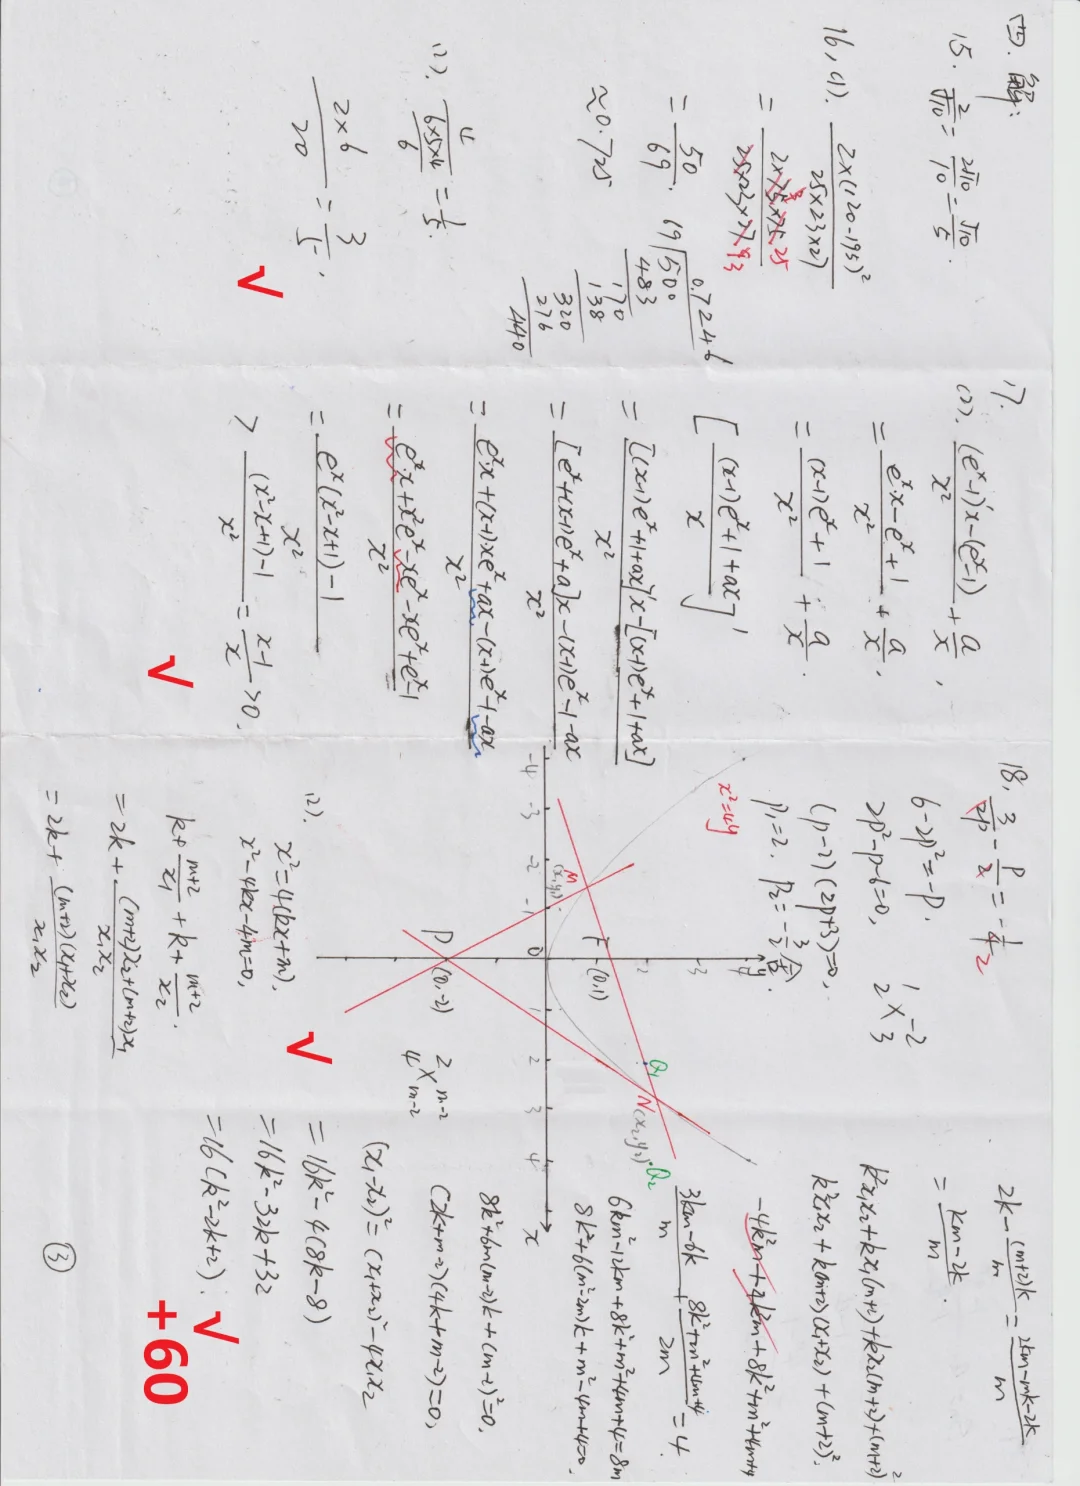 四.解:
15. 2/√10 = 2√10/10 = √10/5.
16,(1). 2×(120-195)²/(25×23×27)
= 2×75×75/(25×23×27) 3 25 9 3
= 50/69.
≈0.725
69)500 0.7246
483
170
138
320
276
440
(2). 4/(6×5×4/6) = 1/5.
2×6/20 = 3/5,
√
17.
(2). ((eˣ-1)'x-(eˣ-1))/x² + a/x,
= (eˣx-eˣ+1)/x² + a/x,
= ((x-1)eˣ+1)/x² + a/x.
[((x-1)eˣ+1+ax)/x]'
= ([(x-1)eˣ+1+ax]'x-[(x-1)eˣ+1+ax])/x²
= ([eˣ+(x-1)eˣ+a]x-(x-1)eˣ-1-ax)/x²
= (eˣx+(x-1)xeˣ+ax-(x-1)eˣ-1-ax)/x²
= (eˣx+x²eˣ-xeˣ-xeˣ+eˣ-1)/x²
= (eˣ(x²-x+1)-1)/x²
> ((x²-x+1)-1)/x² = (x-1)/x >0.
√
18, 3/2p - p/2 = -1/4 2
6-2p²=-p.
2p²-p-6=0,
(p-2)(2p+3)=0,
p₁=2. p₂=-3/2舍.
1 -2
2 3
x²=4y
-4 -3 -2 -1 0 1 2 3 4 x
2 3 y
M
(x₁y₁)
F (0,1)
Q₁
N(x₂,y₂)
Q₂
P (0,-2)
2 m-2
4 m-2
(2).
x²=4(kx+m).
x²-4kx-4m=0,
k+(m+2)/x₁+k+(m+2)/x₂.
=2k+((m+2)x₂+(m+2)x₁)/x₁x₂
=2k+(m+2)(x₁+x₂)/x₁x₂
√
2k-(m+2)k/m = (2km-mk-2k)/m
= (km-2k)/m.
k²x₁x₂+kx₁(m+2)+kx₂(m+2)+(m+2)²
k²x₁x₂+k(m+2)(x₁+x₂)+(m+2)².
-4k²m+4k²m+8k²+m²+4m+4
(3km-6k)/m + (8k²+m²+4m+4)/2m = 4
6km²-12km+8k²+m²+4m+4=8m
8k²+6(m²-2m)k+m²-4m+4=0.
8k²+6m(m-2)k+(m-2)²=0.
(2k+m-2)(4k+m-2)=0,
(x₁-x₂)²=(x₁+x₂)²-4x₁x₂
=16k²-4(8k-8)
=16k²-32k+32
=16(k²-2k+2).
√
+60
③